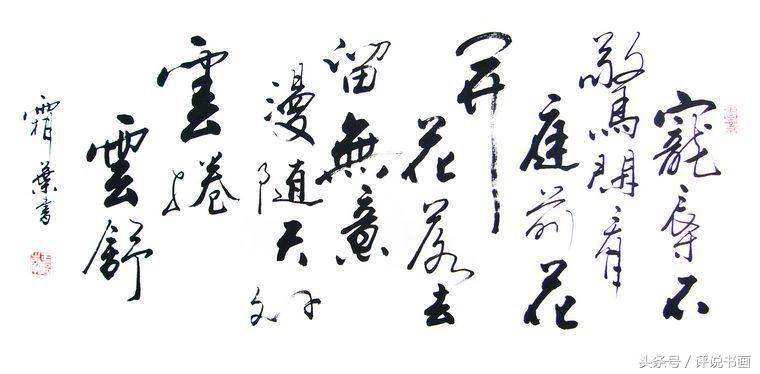 寵辱不
驚閒看
庭前花
開
花落去
留無意
漫随天外
雲捲
雲舒
霜葉書
头条号 / 评说书画